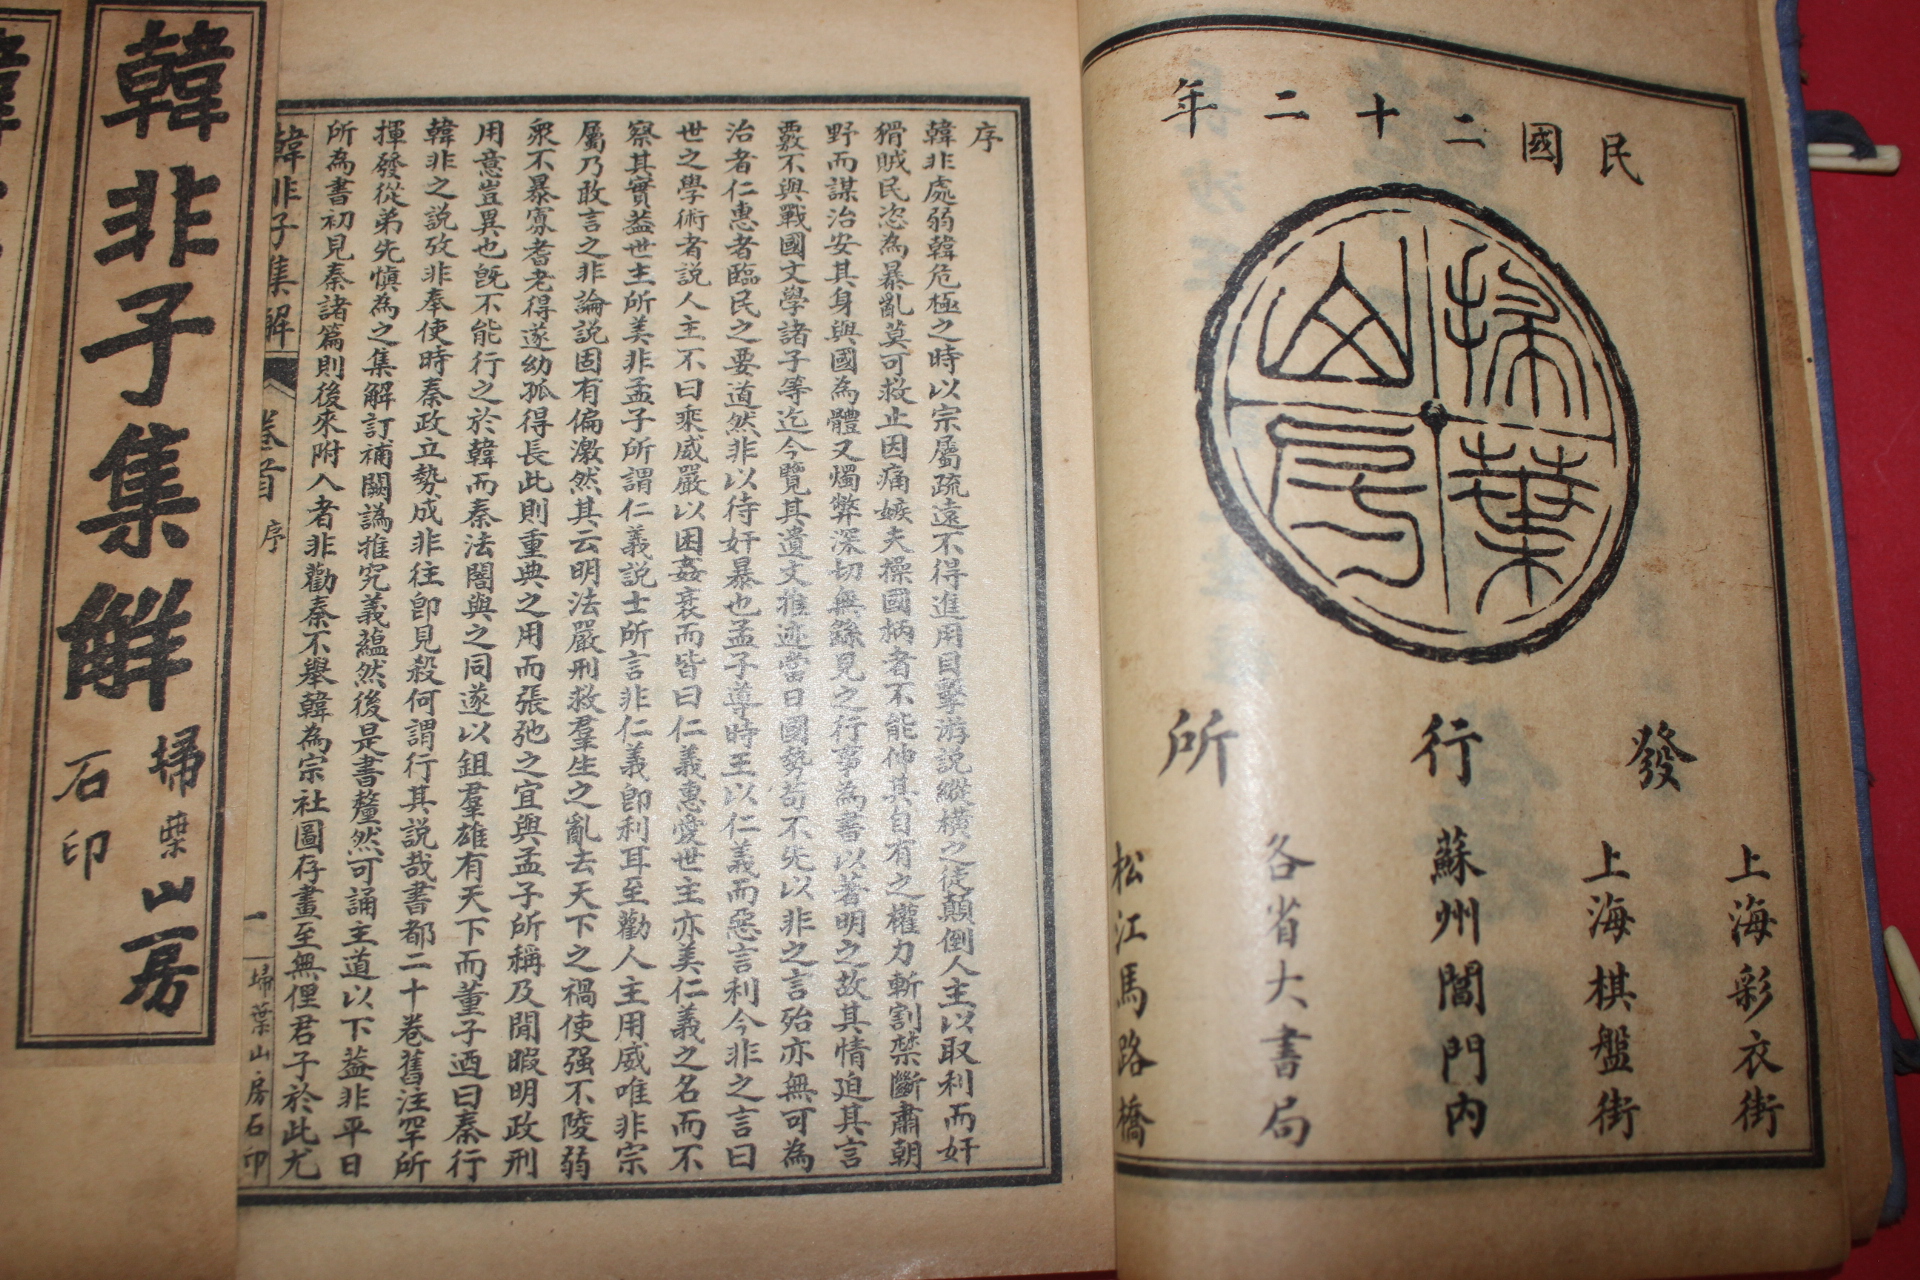 民國二十二年
掃葉山房
發行所
上海彩衣街
上海棋盤街
蘇州閶門內
各省大書局
松江馬路橋
序
韓非處弱韓危極之時以宗屬疏遠不得進用目擊游說縱橫之徒顛倒人主以取利而奸
猾賊民恣為暴亂莫可救止因痛嫉夫操國柄者不能伸其自有之權力斬割禁斷肅朝
野而謀治安其身與國為體又燭弊深切無繇見之行事為書以著明之故其情迫其言
覈不與戰國文學諸子等迄今覽其遺文推迹當日國勢苟不先以非之言殆亦無可為
治者仁惠者臨民之要道然非以待奸暴也孟子導時王以仁義而惡言利今非之言曰
世之學術者說人主不曰乘威嚴以困姦衺而皆曰仁義惠愛世主亦美仁義之名而不
察其實蓋世主所美非孟子所謂仁義說士所言非仁義卽利耳至勸人主用威唯非宗
屬乃敢言之非論說固有偏激然其云明法嚴刑救羣生之亂去天下之禍使强不陵弱
衆不暴寡耆老得遂幼孤得長此則重典之用而張弛之宜與孟子所稱及閒暇明政刑
用意豈異也旣不能行之於韓而秦法闇與之同遂以鉏羣雄有天下而董子迺曰秦行
韓非之說攷非奉使時秦政立勢成非往卽見殺何謂行其說哉書都二十卷舊注罕所
揮發從弟先愼為之集解訂補闕譌推究義蘊然後是書釐然可誦主道以下蓋非平日
所為書初見秦諸篇則後來附入者非勸秦不舉韓為宗社圖存畫至無俚君子於此尤
韓非子集解
卷首
序
一
掃葉山房石印
韓非子集解
掃葉山房
石印